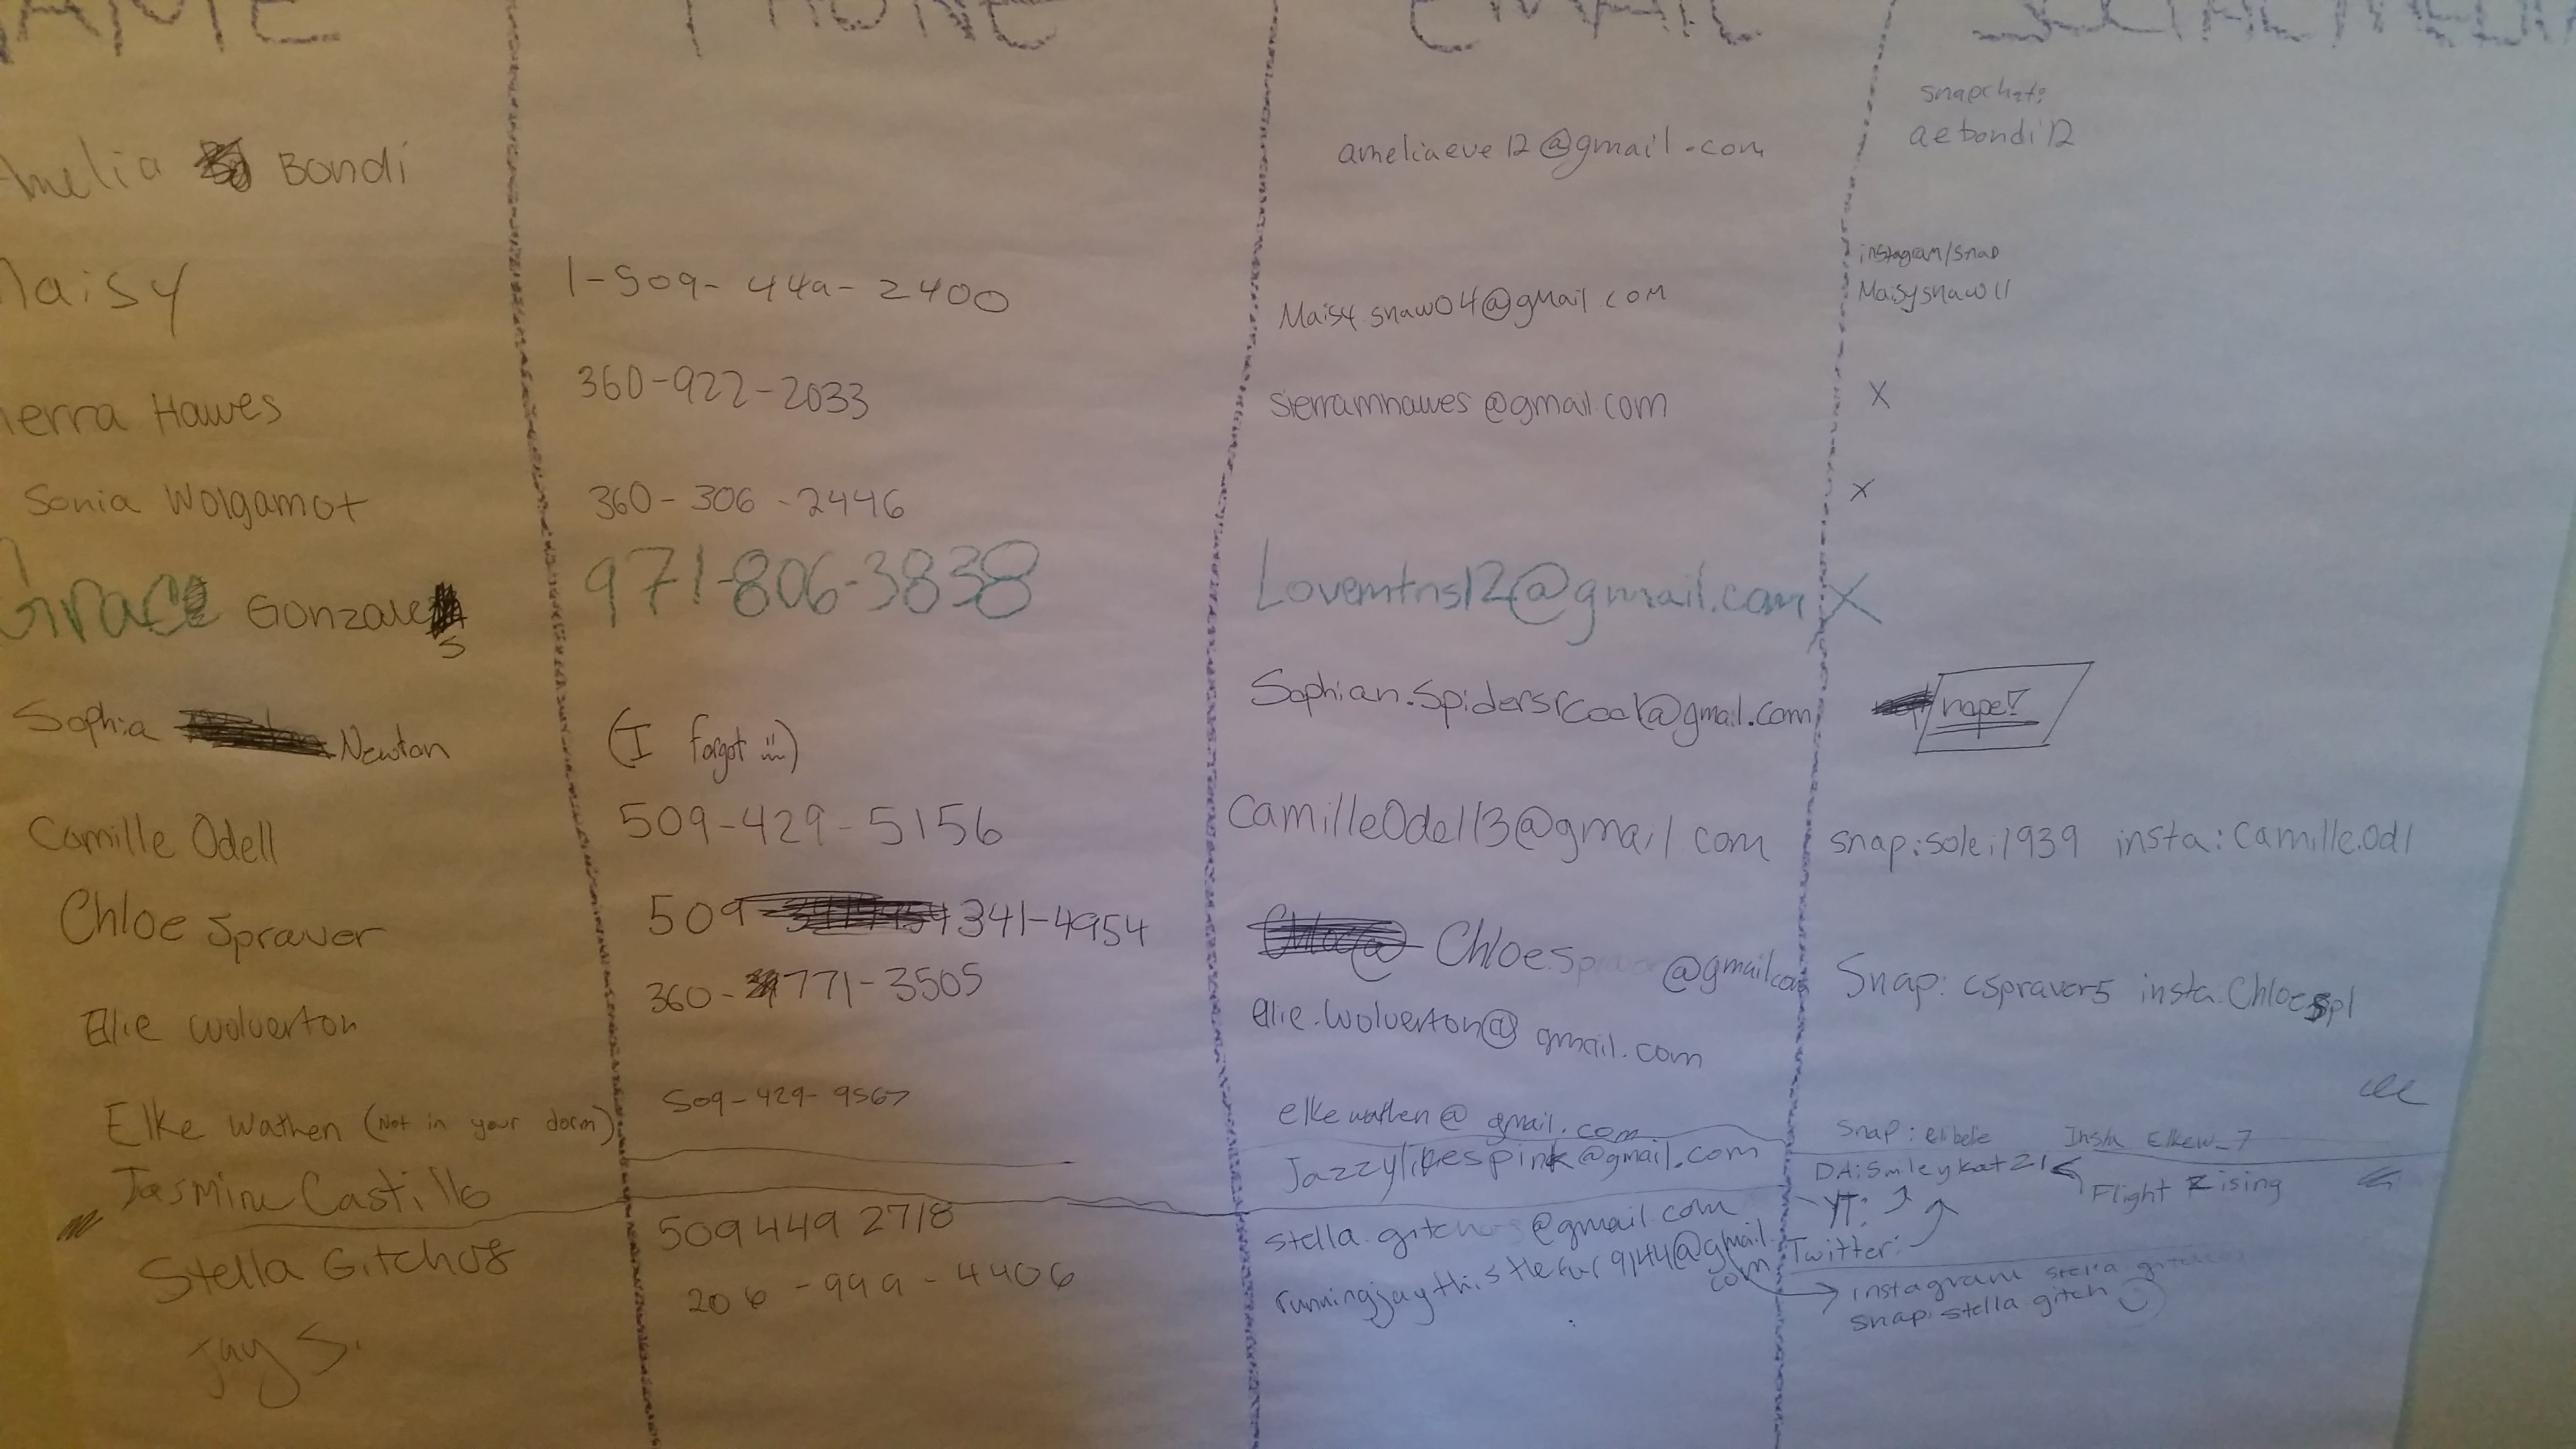 NAME PHONE EMAIL SOCIAL MEDIA
Amelia Bondi ameliaeve12@gmail.com snapchat: aebondi12
Maisy 1-509-449-2400 Maisy.shaw04@gmail.com instagram/snap Maisyshaw11
Sierra Hawes 360-922-2033 sierramhawes@gmail.com X
Sonia Wolgamot 360-306-2446 X
Grace Gonzales 971-806-3838 Lovemtns12@gmail.com X
Sophia Newton (I forgot) Sophian.spidersrcool@gmail.com nope!
Camille Odell 509-429-5156 camilleOdell3@gmail com snap:soleil939 insta:camille.odl
Chloe Spraver 509 341-4954 Chloe @gmail.com Snap: cspraver5 insta.Chloespl
Ellie Wolverton 360-771-3505 ellie.wolverton@gmail.com
Elke Wathen (Not in your dorm) 509-429-9567 elkewathen@gmail.com Snap: Insta Elkew_7
Jasmine Castillo Jazzylikespink@gmail.com DA:SmileyKat21 Flight Rising
YT:
Twitter:
Stella Gitchos 509 449 2718 stella.gitchos@gmail.com instagram stella
snap: stella.gitch
Jay S. 206-999-4406 runningjaythistlefur9144@gmail.com